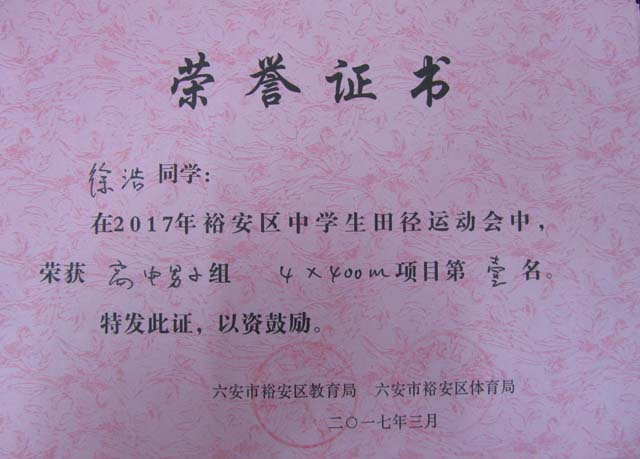 荣誉证书
徐浩同学：
在2017年裕安区中学生田径运动会中，
荣获 高中男子组 4×400m项目第壹名。
特发此证，以资鼓励。
六安市裕安区教育局 六安市裕安区体育局
二〇一七年三月